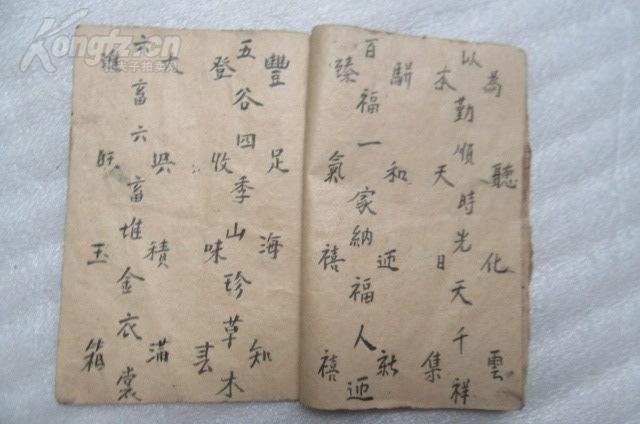 為聽化雲
以勤順時先天千祥
本天日集
駢和迎新
百福一家納福人迎
臻氣禧禧
豐足海知
五谷四季山珍草木
登收味春
大興積滿
六畜六畜堆金衣裳
旺玉箱
Kongfz.cn